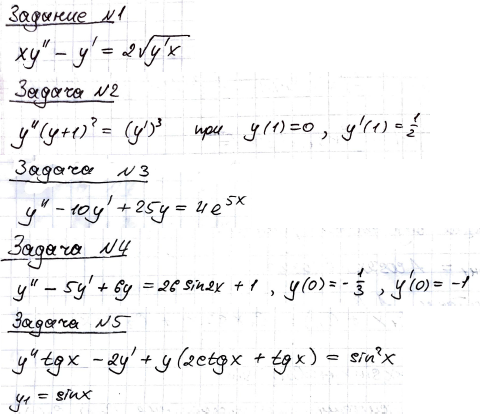 Задание №1
xy'' - y' = 2√(y'x)
Задача №2
y''(y+1)² = (y')³ при y(1)=0, y'(1)=1/2
Задача №3
y'' - 10y' + 25y = 4e^(5x)
Задача №4
y'' - 5y' + 6y = 26 sin2x + 1, y(0) = -1/3, y'(0) = -1
Задача №5
y'' tgx - 2y' + y(2ctgx + tgx) = sin²x
y₁ = sinx